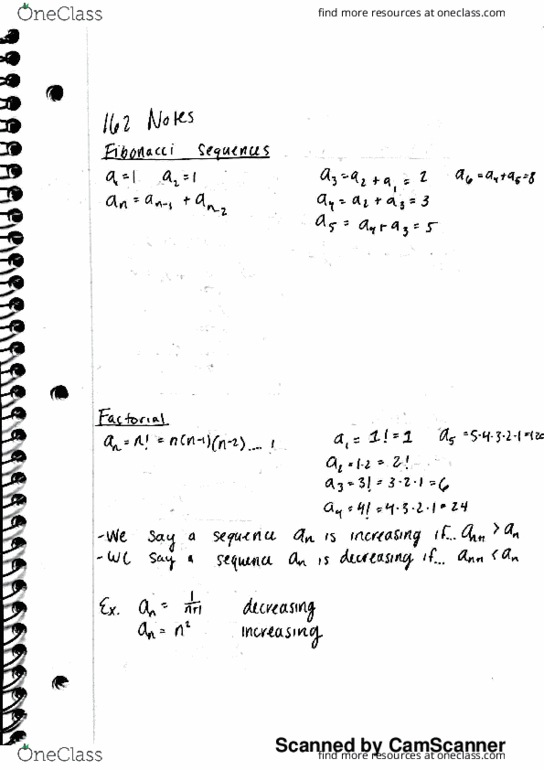 OneClass
find more resources at oneclass.com
162 Notes
Fibonacci Sequences
a₁=1 a₂=1
a₃=a₂+a₁=2 a₆=a₄+a₅=8
aₙ=aₙ₋₁+aₙ₋₂
a₄=a₂+a₃=3
a₅=a₄+a₃=5
Factorial
aₙ=n!=n(n-1)(n-2)....1
a₁=1!=1 a₅=5·4·3·2·1=120
a₂=1·2=2!
a₃=3!=3·2·1=6
a₄=4!=4·3·2·1=24
-We say a sequence aₙ is increasing if... aₙ₊₁>aₙ
-We say a sequence aₙ is decreasing if... aₙ₊₁<aₙ
Ex. aₙ=1/n+1 decreasing
aₙ=n² increasing
Scanned by CamScanner
OneClass
find more resources at oneclass.com